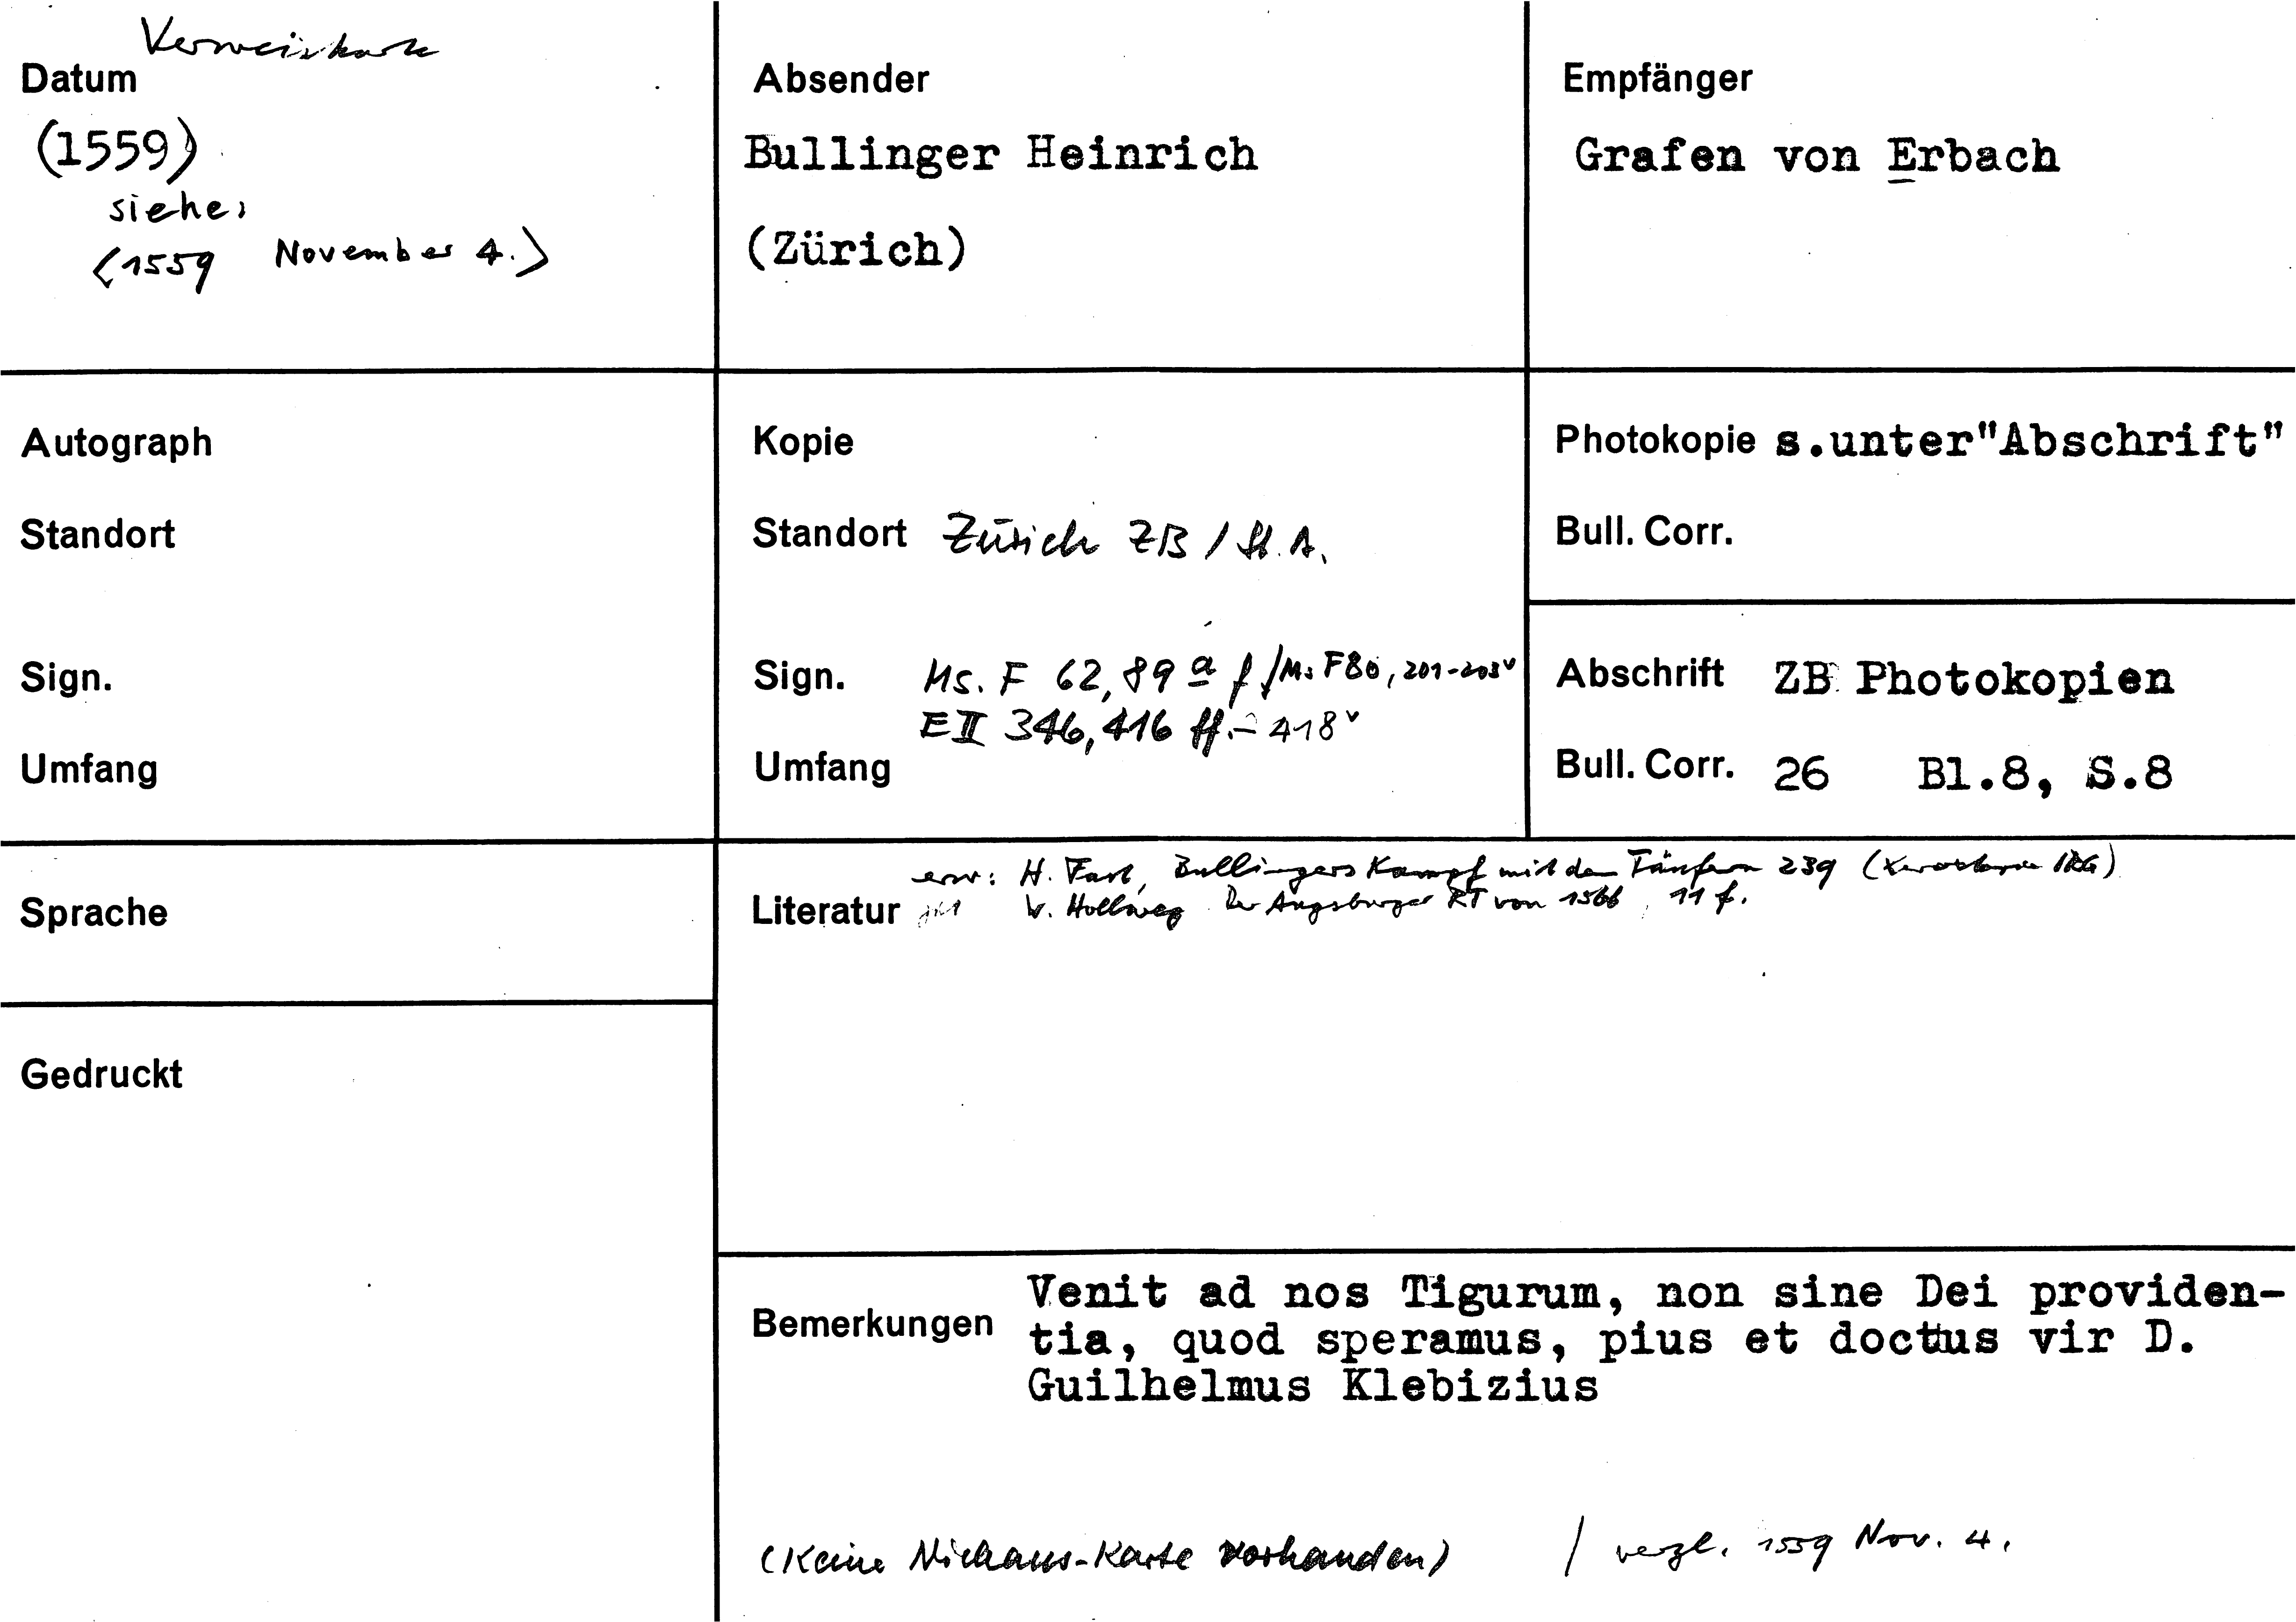 Verweiskarte
Datum
(1559)
siehe:
<1559 November 4.>
Absender
Bullinger Heinrich
(Zürich)
Empfänger
Grafen von Erbach
Autograph
Standort
Sign.
Umfang
Kopie
Standort Zürich ZB / St.A.
Sign. Ms. F 62, 89 a f / Ms F 80, 201-203v
E II 346, 416 ff. - 418v
Umfang
Photokopie s.unter"Abschrift"
Bull. Corr.
Abschrift ZB Photokopien
Bull. Corr. 26 Bl.8, S.8
Sprache
Gedruckt
erw: H. Fast, Bullingers Kampf mit den Täufern 239 (Xerokopie IRG)
Literatur W. Hollweg Der Augsburger RT von 1566, 11 f.
Bemerkungen
Venit ad nos Tigurum, non sine Dei providen-
tia, quod speramus, pius et doctus vir D.
Guilhelmus Klebizius
(Keine Niehaus-Karte vorhanden) / vergl. 1559 Nov. 4.